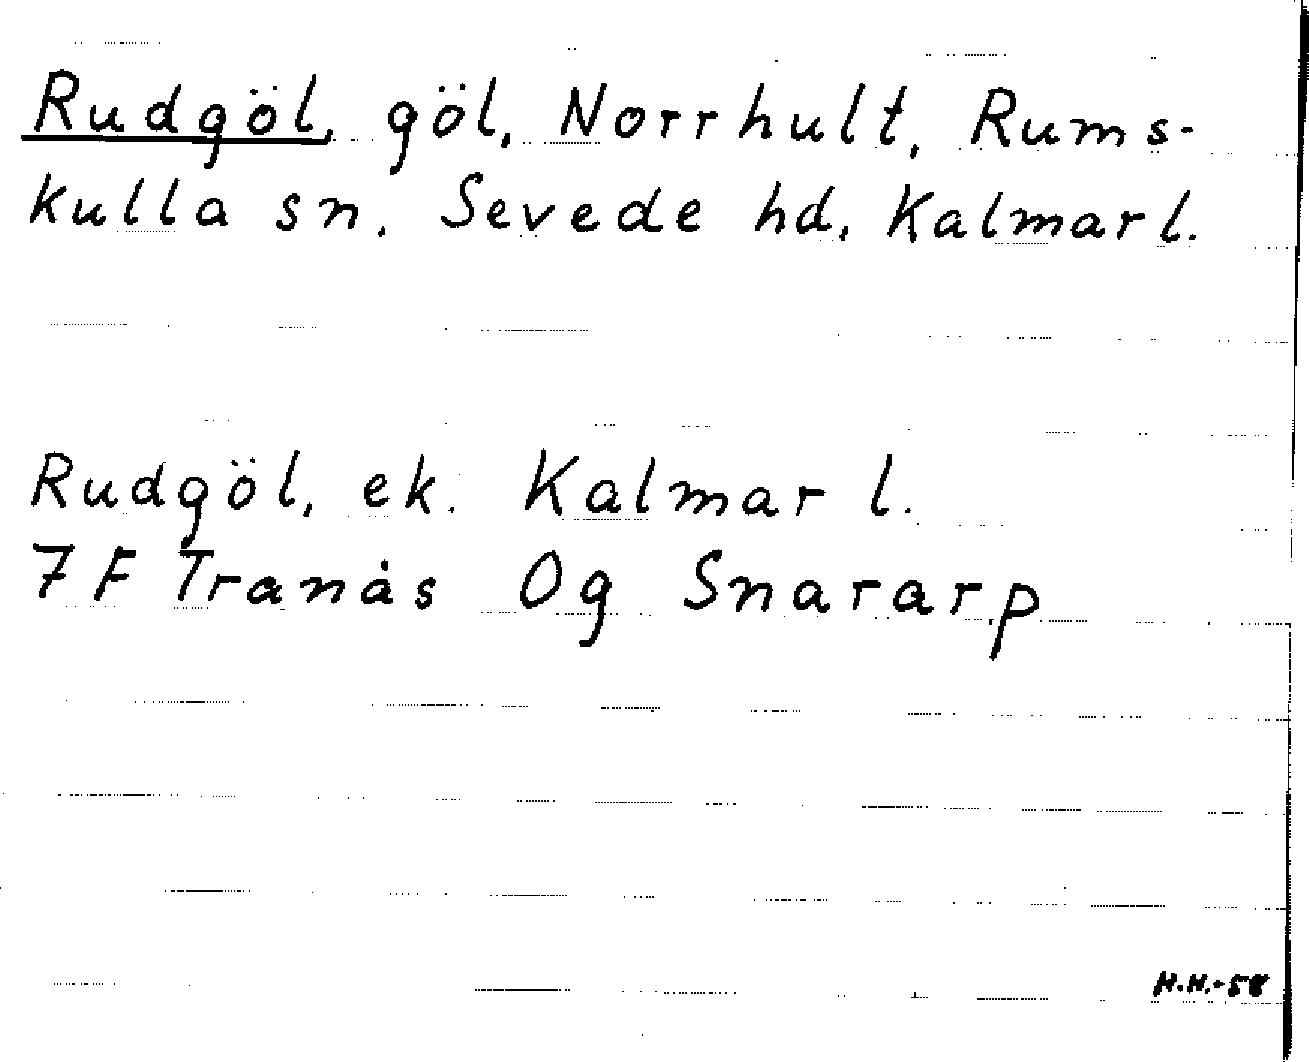 Rudgöl, göl, Norrhult, Rums-
kulla sn, Sevede hd, Kalmar l.
Rudgöl, ek. Kalmar l.
7F Tranås Og Snararp
H.H.-58